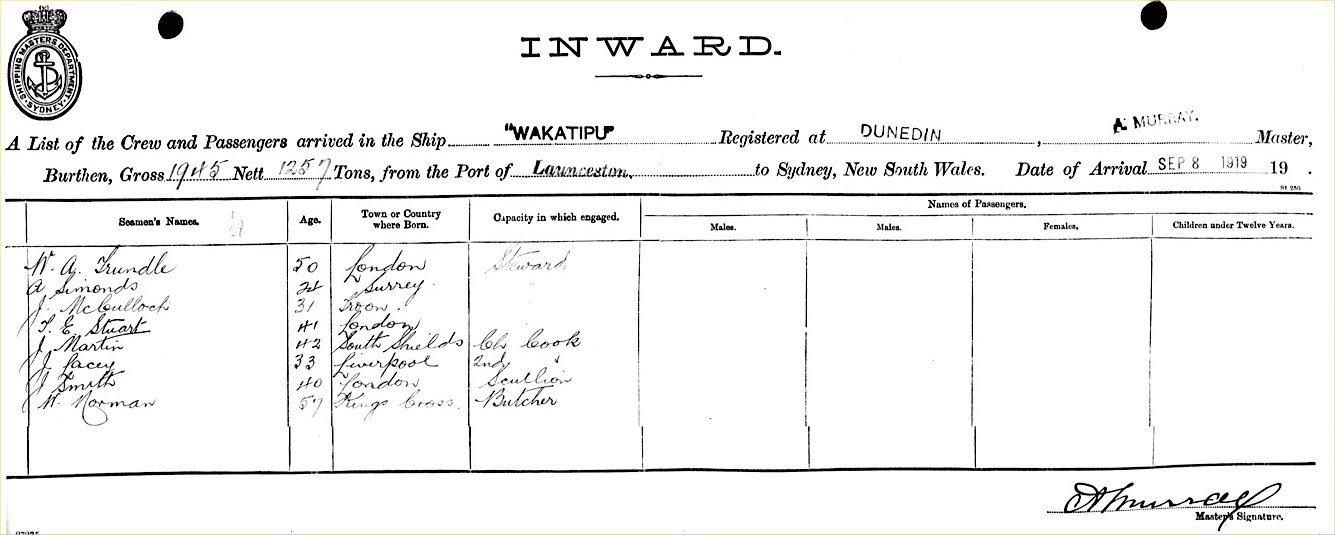 SHIPPING MASTERS DEPARTMENT. SYDNEY
INWARD.
A List of the Crew and Passengers arrived in the Ship "WAKATIPU" Registered at DUNEDIN, A. MURRAY. Master,
Burthen, Gross 1945 Nett 1257 Tons, from the Port of Launceston. to Sydney, New South Wales. Date of Arrival SEP 8 1919 19 .
St 250
Seamen's Names. Age. Town or Country where Born. Capacity in which engaged. Names of Passengers.
Males. Males. Females. Children under Twelve Years.
W. A. Trundle 50 London Steward
A Simonds Surrey "
J. McCulloch 31 Troon.
T. E. Stuart 41 London
J. Martin 42 South Shields Ch Cook
J Lacey 33 Liverpool 2nd "
J Smith 40 London Scullion
W. Norman 57 Kings Cross. Butcher
A Murray
Master's Signature.